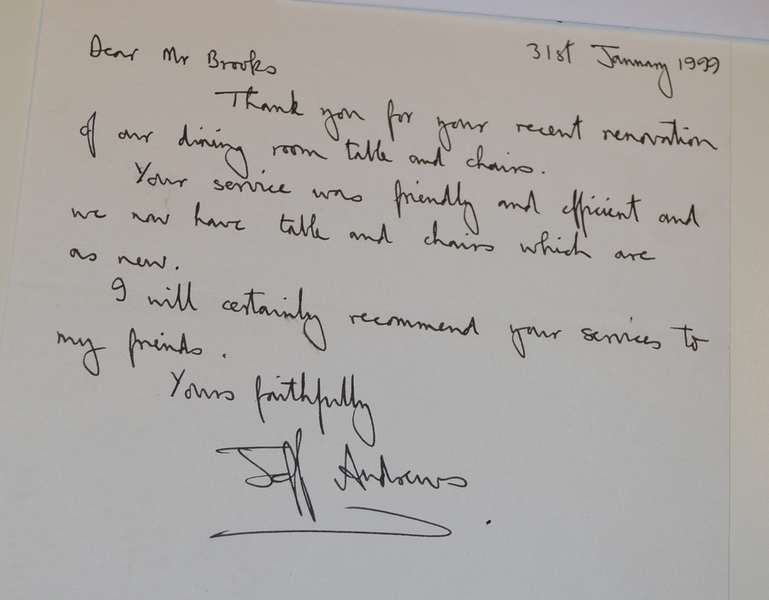 31st January 1999
Dear Mr Brooks
Thank you for your recent renovation
of our dining room table and chairs.
Your service was friendly and efficient and
we now have table and chairs which are
as new.
I will certainly recommend your services to
my friends.
Yours faithfully
Jeff Andrews